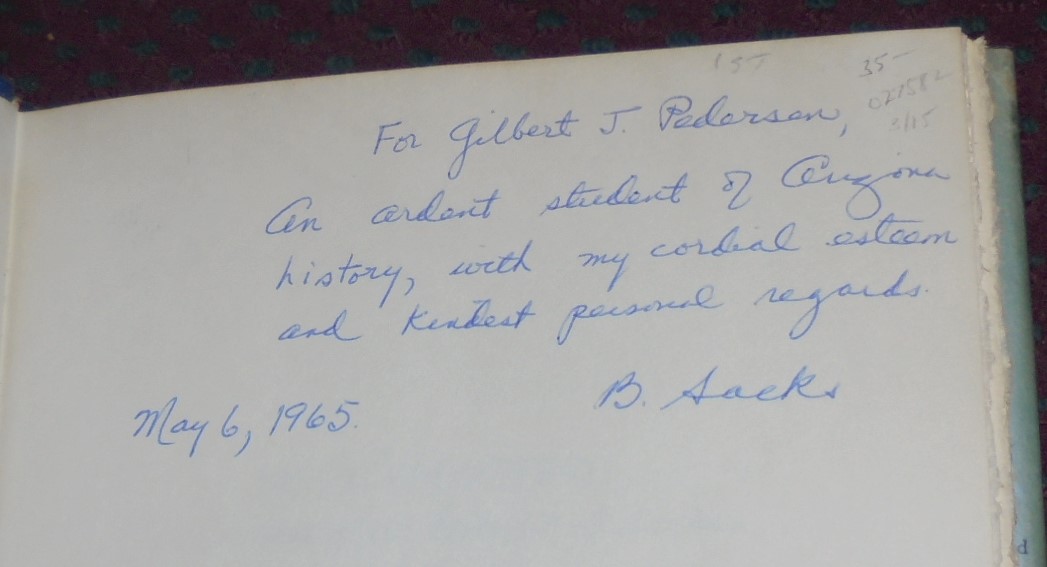 1ST
35-
027582
3/15
For Gilbert J. Pedersen,
An ardent student of Arizona
history, with my cordial esteem
and kindest personal regards.
B. Sacks
May 6, 1965.
d